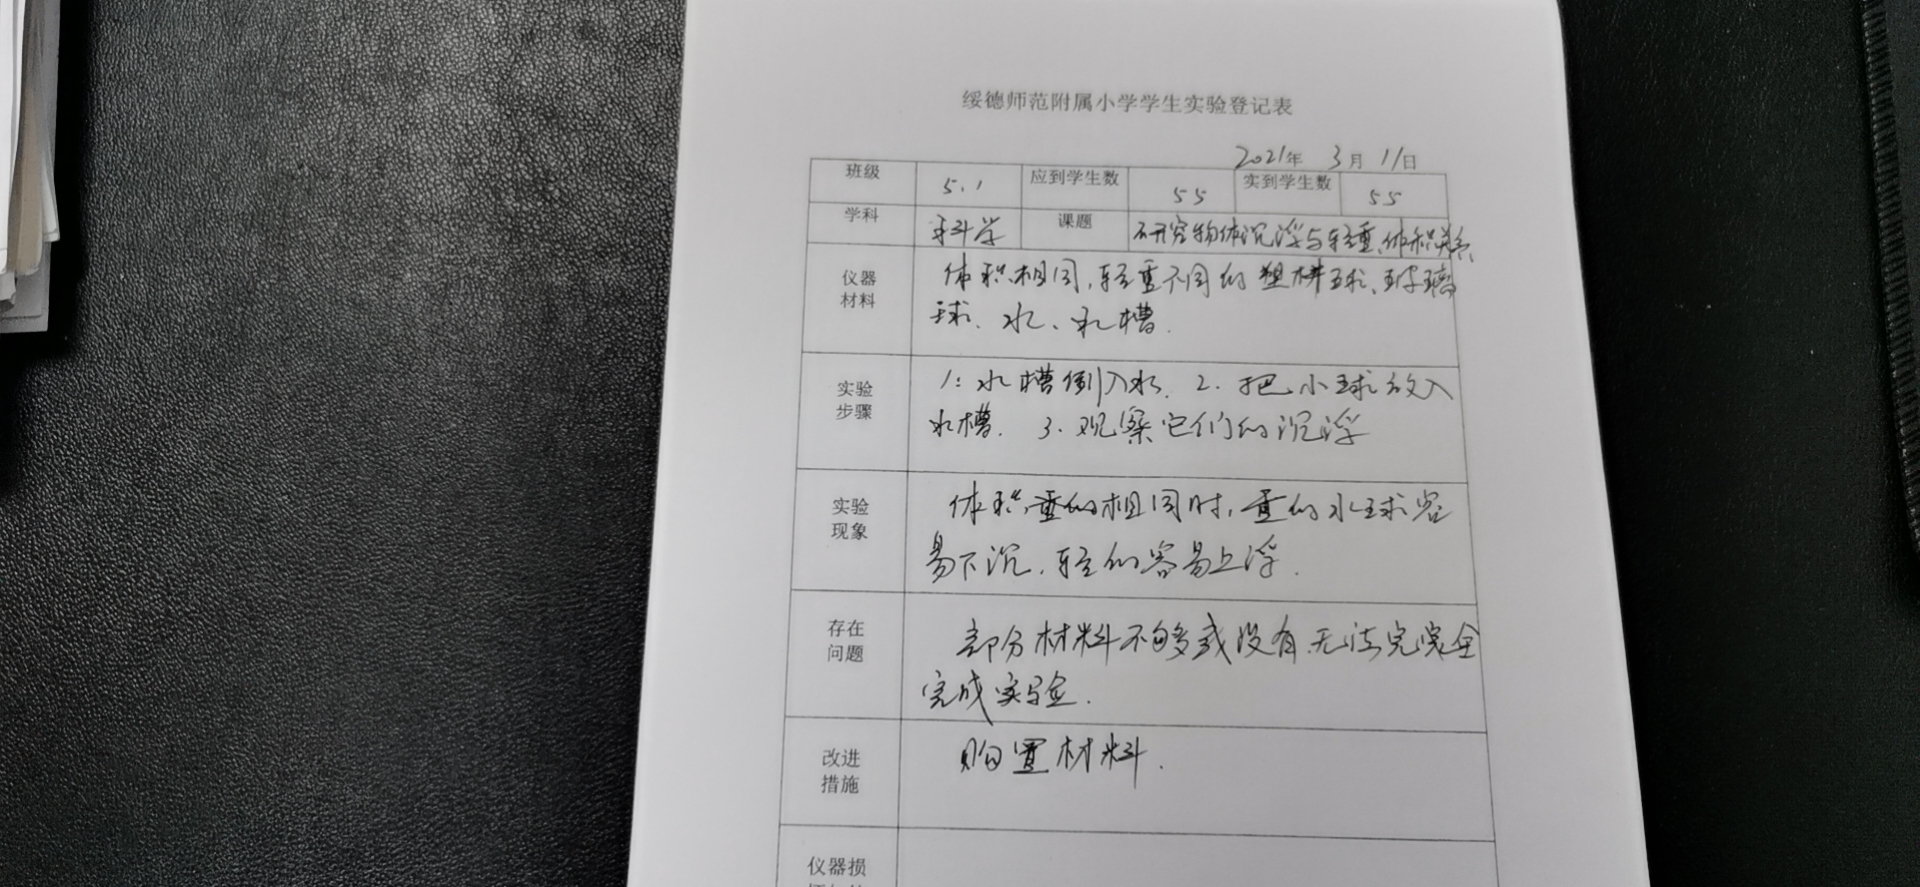 绥德师范附属小学学生实验登记表
2021年 3月 11日
班级 5.1 应到学生数 55 实到学生数 55
学科 科学 课题 研究物体沉浮与轻重、体积关系
仪器
材料
体积相同,轻重不同的塑料球、玻璃
球、水、水槽.
实验
步骤
1: 水槽倒入水. 2. 把小球放入
水槽. 3. 观察它们的沉浮
实验
现象
体积重的相同时,重的水球容
易下沉,轻的容易上浮.
存在
问题
部分材料不够或没有,无法完完全
完成实验.
改进
措施
购置材料.
仪器损